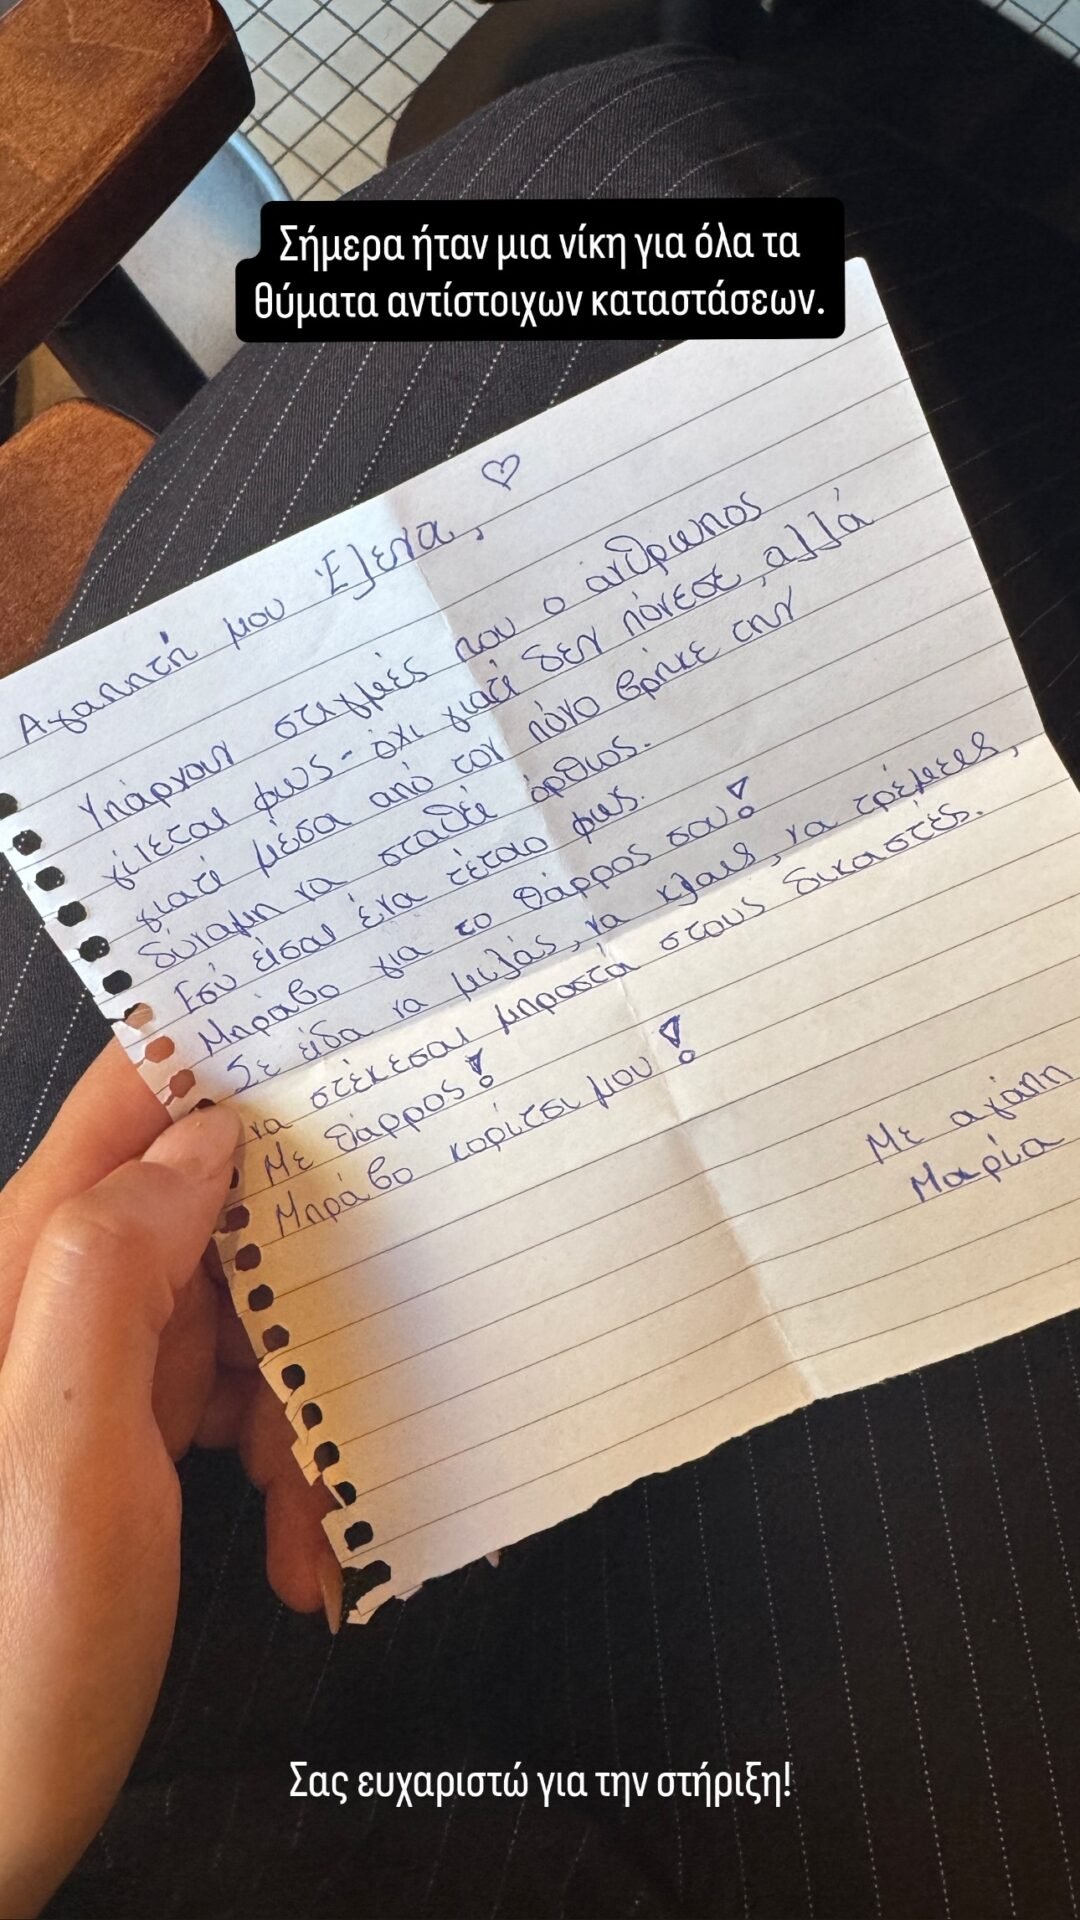 Σήμερα ήταν μια νίκη για όλα τα
θύματα αντίστοιχων καταστάσεων.
Αγαπητή μου Έλενα,
Υπάρχουν στιγμές που ο άνθρωπος
γίνεται φως - όχι γιατί δεν πόνεσε, αλλά
γιατί μέσα από τον πόνο βρήκε την
δύναμη να σταθεί όρθιος.
Εσύ είσαι ένα τέτοιο φως.
Μπράβο για το θάρρος σου!
Σε είδα να μιλάς, να κλαις, να τρέμεις,
να στέκεσαι μπροστά στους δικαστές.
Με θάρρος!
Μπράβο κορίτσι μου!
Με αγάπη
Μαρία
Σας ευχαριστώ για την στήριξη!